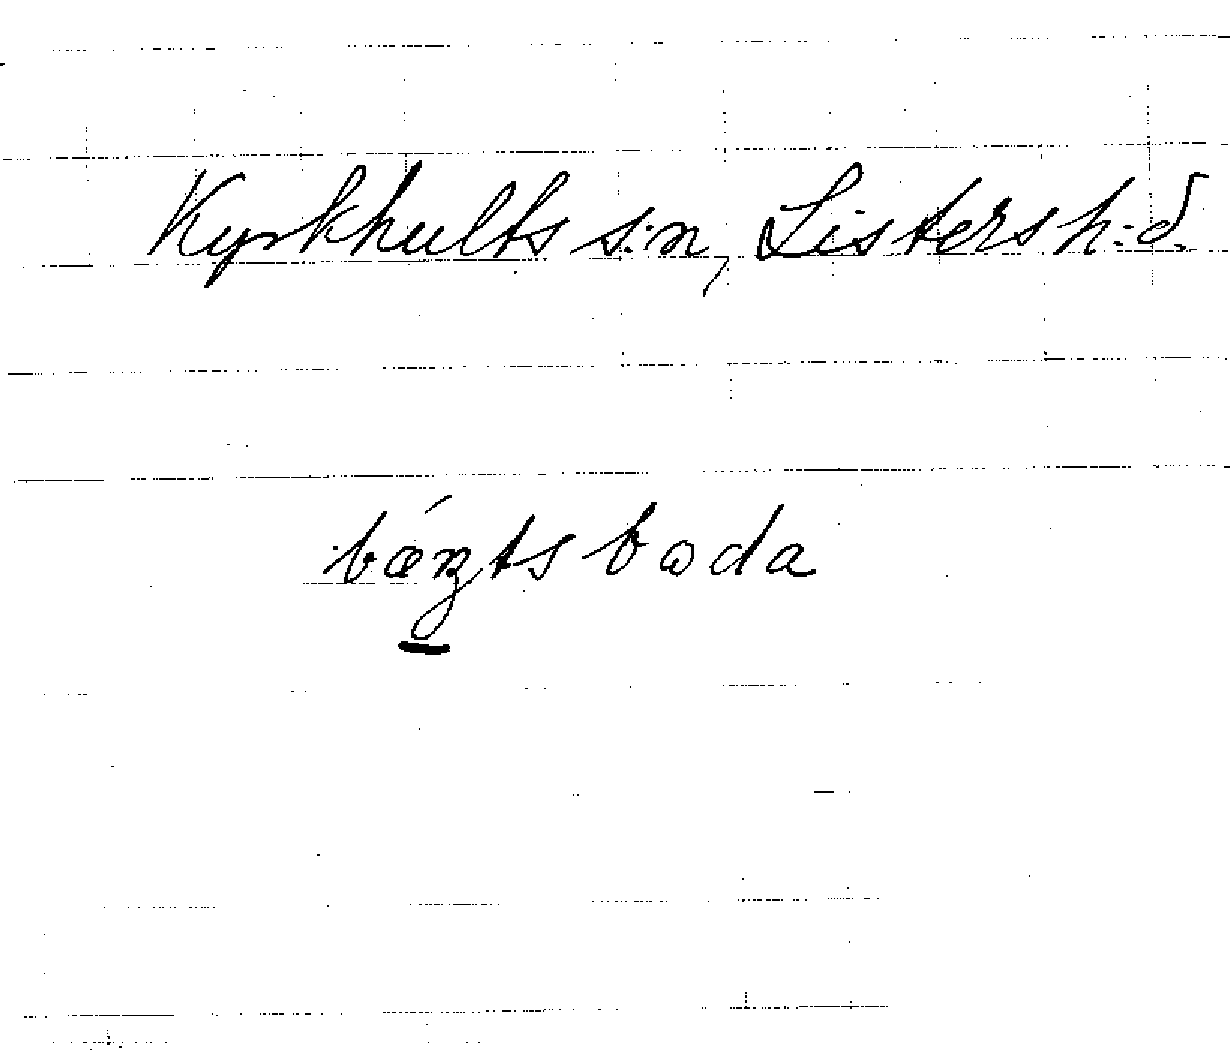 Kyrkhults s:n, Listers h:d.
bǽn̠tsboda